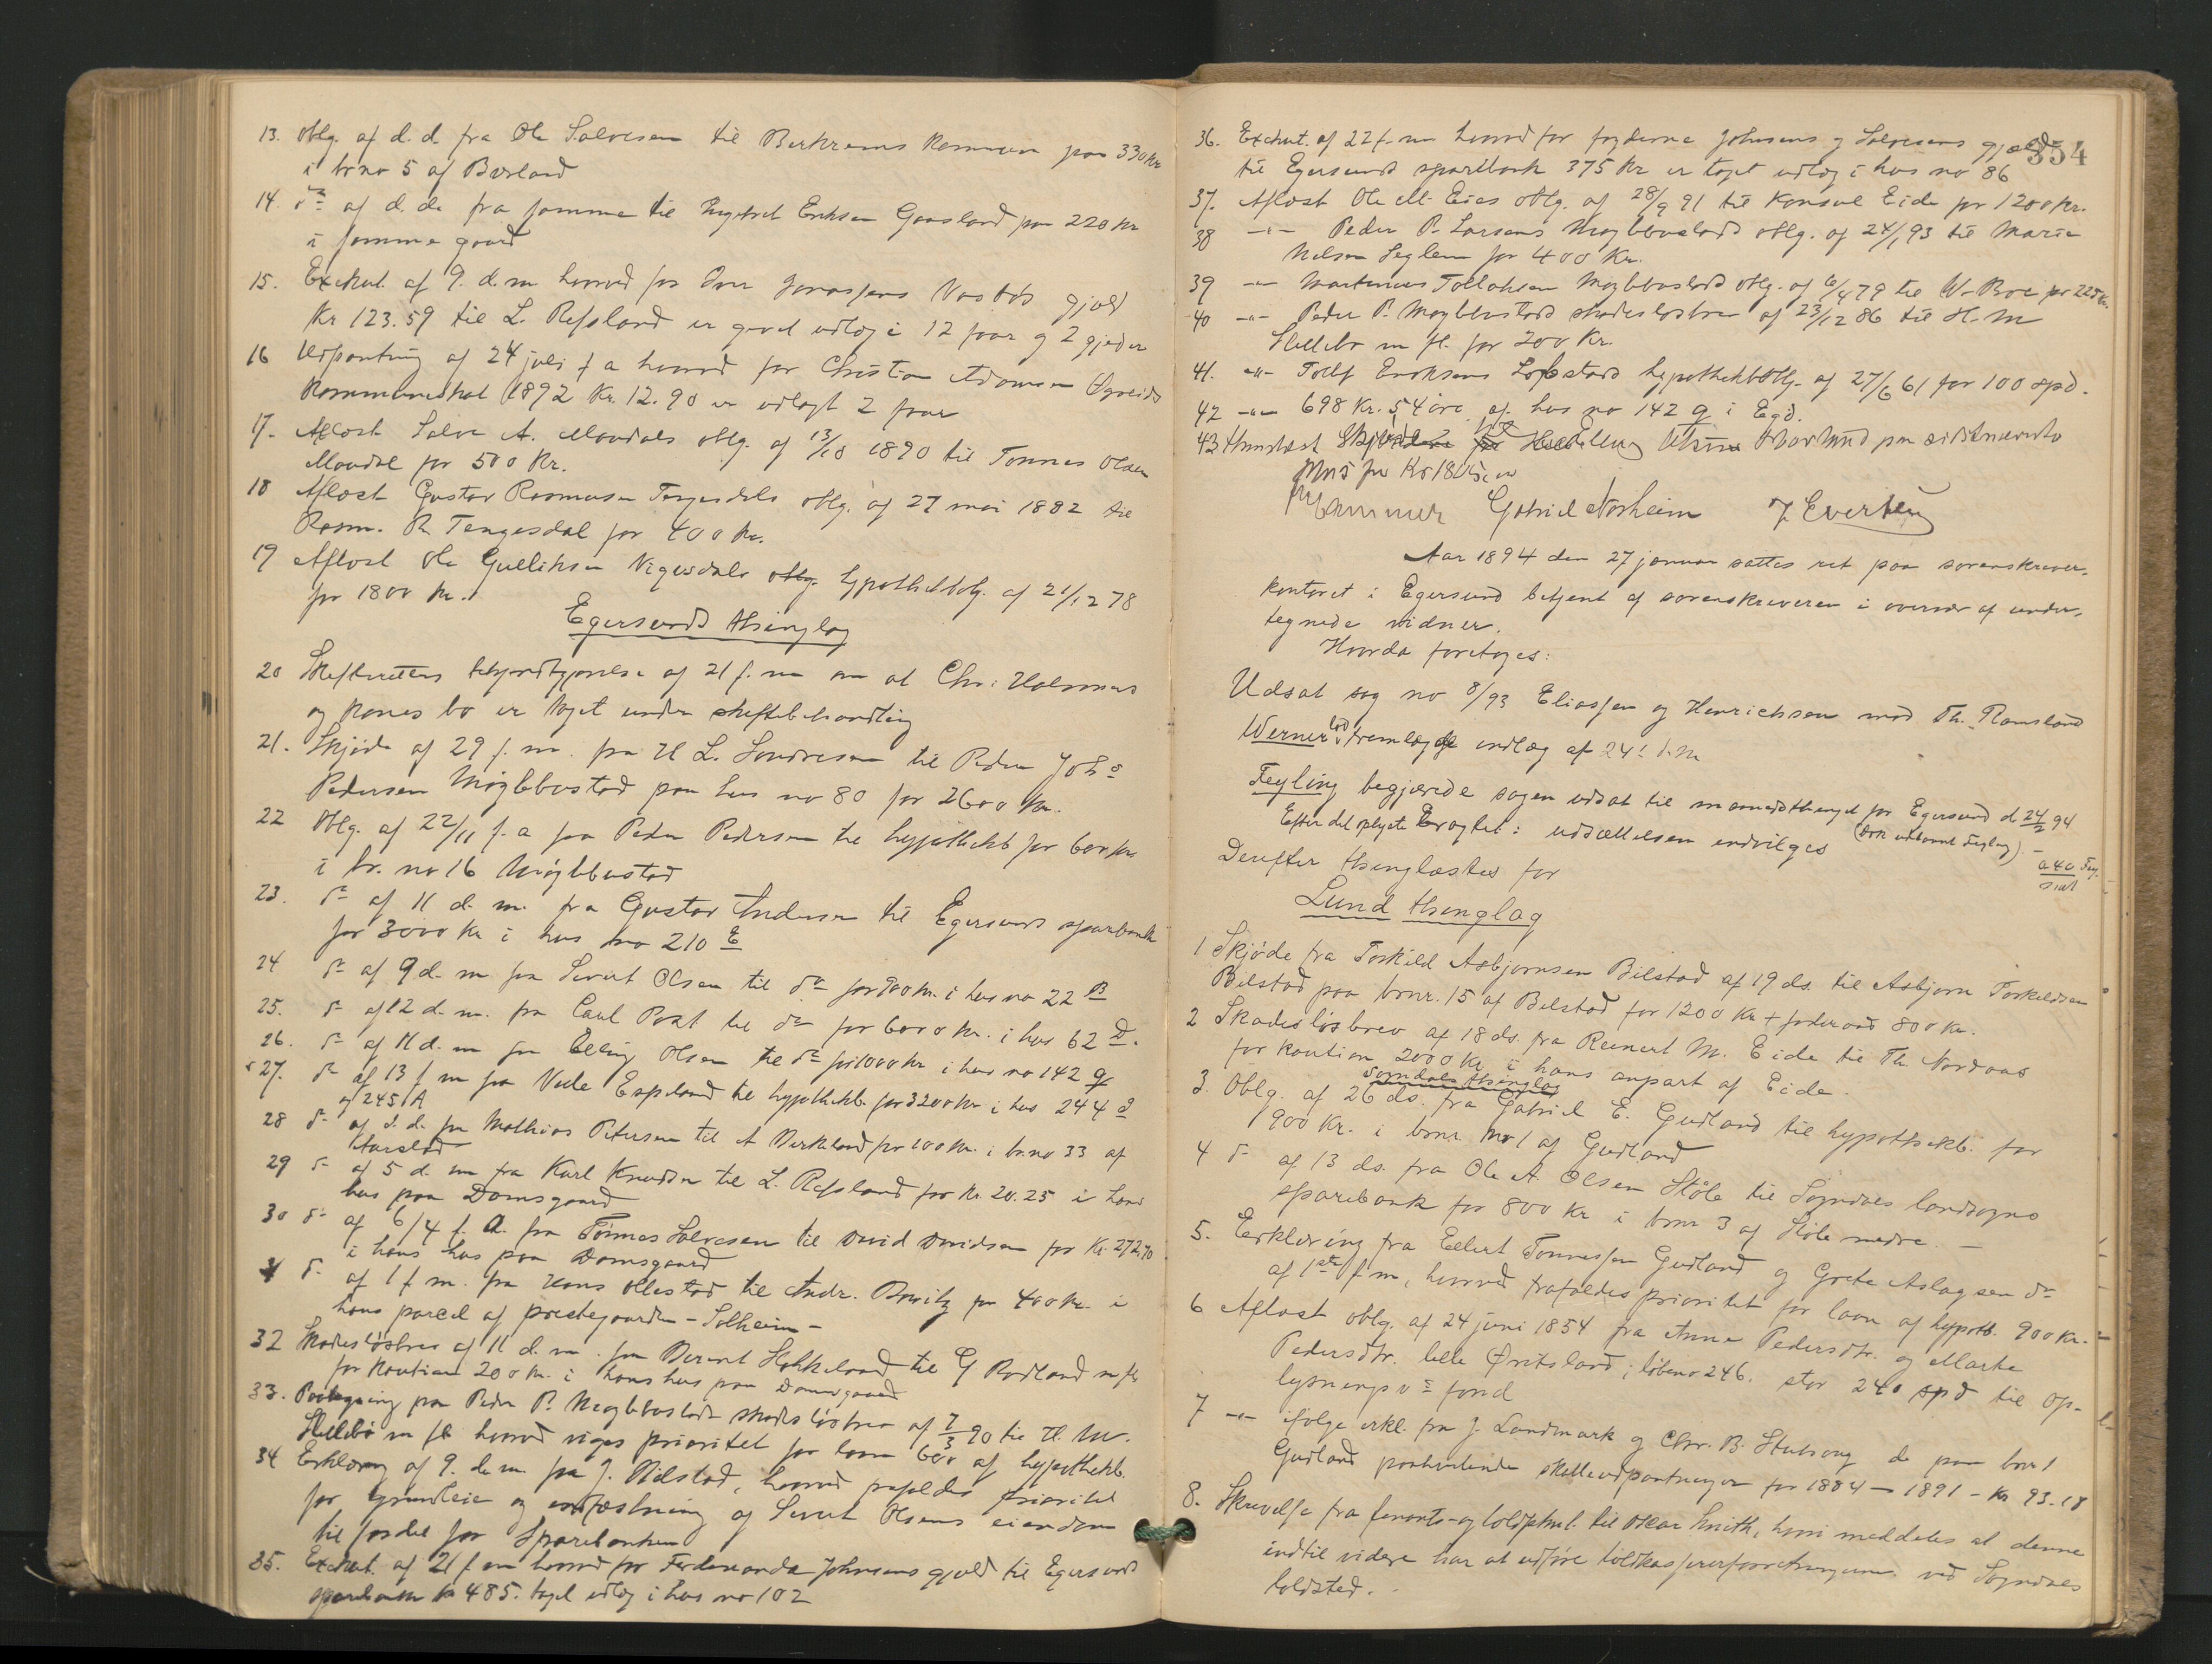 13. Oblg. af d. d. fra Ole Salvesen til Birkrems kommune paa 330 kr
i br no 5 af Birland
14. do af d. d. fra samme til Ingebret Eriksen Gaasland paa 220 kr
i samme gaard
15. Exekut. af 9. d. m hvorved for Iver Jonassens Vasbøs gjæld
kr 123.59 til L. Refsland er gjort udlæg i 12 faar og 2 gjeder
16 Udpantning af 24 juli f a hvorved for Christian Adamsen Øgreids
kommuneskat 1892 kr. 12.90 er udlagt 2 faar
17. Aflæst Salve A. Mondals oblg. af 13/10 1890 til Tønnes Olsen
Mondal for 500 kr.
18 Aflæst Gustav Rasmusen Tengesdals oblg. af 27 mai 1882 til
Rasm. R Tengesdal for 400 kr.
19 Aflæst Ole Gulliksen Vigesdals hypothekoblg. af 21/12 78
for 1800 kr.
Egersunds thinglag
20 Skifterettens bekjendtgjørelse af 21 f. m om at Chr. Halvorsens
og kones bo er taget under skiftebehandling
21. Skjøde af 29 f. m. fra H L. Sondresen til Peder Johs
Pedersen Møgbbestad paa hus no 80 for 2600 kr.
22 Oblg. af 22/11 f. a fra Peder Pedersen til hypothekb for 600 kr.
i br. no 16 Møgbbestad
23. do af 11 d. m. fra Gustav Andersen til Egersunds sparebank
for 3000 kr i hus no 210 E
24 do af 9 d. m fra Sivert Olsen til do for 900 kr. i hus no 22 B
25. do af 12 d. m. fra Carl Post til do for 6000 kr. i hus 62 D.
26. do af 11 d. m fra Elling Olsen til do for 1000 kr i hus no 142 q
27. do af 13 f m fra Vilh Espeland til hypothekb. for 3200 kr i hus 244 d
og 245 1A
28 do af d. d. fra Mathias Petersen til A Birkeland for 100 kr. i br. no 33 af
Harstad
29 do af 5 d. m fra Karl Knudsen til L. Refsland for kr. 20.25 i hans
hus paa Damsgaard
30 do af 6/4 f. a. fra Tønnes Salvesen til David Davidsen for kr. 272.70
i hans hus paa Damsgaard
31 do af 1 f m. fra Hans Ollestad til Andr. for 400 kr. i
hans parcel af præstegaarden - Solheim -
32 Skadesløsbrev af 11 d. m. fra Berent Hokkeland til G Rodland m fl
for kaution 200 kr. i hans hus paa Damsgaard
33. Paategning paa Peder P. Møgbbestads skadesløsbrev af 7/3 90 til H. M.
Hellebø m fl hvorved viges prioritet for laan 600 af hypothekb.
34 Erklæring af 9. d. m. fra J. Bilstad, hvorved frafaldes prioritet
for grundleie og indfæstning af Sivert Olsens eiendom
til fordel for Sparebanken
35. Exekut. af 21 f m hvorved for Ferdinanda Johnsens gjæld til Egersunds
sparebank kr 485. taget udlæg i hus no 102
354
36. Exekut. af 22 f. m hvorved for fogderne Johnsens og Salvesens gjæld
til Egersunds sparebank 375 kr er taget udlæg i hus no 86
37. Aflæst Ole M. Eies oblg. af 28/9 91 til Konsul Eide for 1200 kr.
38 -"- Peder P. Larsens Møgbbestads oblg. af 24/1 93 til Marie
Nilsen Seglem for 400 kr.
39 -"- Martinius Tollaksen Møgbbestads oblg. af 6/4 79 til W. Boe for 225 kr.
40 -"- Peder P. Møgbbestads skadesløsbrev af 23/12 86 til H. M
Hellebø m fl. for 200 kr.
41. -"- Tollf Eriksens Løbstads hypothekoblg. af 27/6 61 for 100 spd.
42 -"- 698 kr. 54 øre af hus no 142 q i Egd.
43 Thinglæst Skjøde fra Elling
for kr 1805,00
Gabriel Norheim J. Evertsen
Aar 1894 den 27 januar sattes ret paa sorenskriver-
kontoret i Egersund betjent af sorenskriveren i overvær af under-
tegnede vidner.
Hvorda foretages:
Udsat sag no 8/93 Eliassen og Henrichsen mod Th. Ramsland
Werner lod fremlægge indlæg af 24! d. M
Feyling begjærede sagen udsat til maanedsthinget for Egersund d 24/2 94
Efter det oplyste Eragtet: udsættelsen indvilges
Derefter thinglæstes for
a 40
Lund thinglag
1 Skjøde fra Torkild Asbjørnsen Bilstad af 19 ds. til Asbjørn Torkildsen
Bilstad paa brnr. 15 af Bilstad for 1200 kr + føderaad 800 kr.
2 Skadesløsbrev af 18 ds. fra Reinert M. Eide til Th. Nordaas
for kaution 2000 kr i hans anpart af Eide.
Sogndals thinglag
3. Oblg. af 26 ds. fra Gabriel E. Gudland til hypothekb. for
900 kr. i brnr. no 1 af Gudland
4 do af 13 ds. fra Ole A. Olsen Støle til Sogndals landsogns
sparebank for 800 kr i brnr 3 af Støle nedre. -
5. Erklæring fra Eilert Tønnessen Gudland og Grete Aslagsen do
af 1ste f m, hvorved frafaldes prioritet for laan af hypoth. 900 kr.
6 Aflæst oblg. af 24 juni 1854 fra Anne Pedersdtr. og Marte
Pedersdtr. lille Øvitsland, løbeno 246. stor 240 spd til Op-
lysningsvs fond
7 -"- ifølge erkl. fra J. Landmark og Chr. B. Stubvaag de paa brnr 1
Gudland paahvilende skatteudpantninger for 1884 - 1891 - kr 93.18
8. Skrivelse fra finants- og toldpkmt. til Oscar Smith, hvori meddeles at denne
indtil videre har at udføre toldkassererforretningerne ved Sogndals
toldsted.